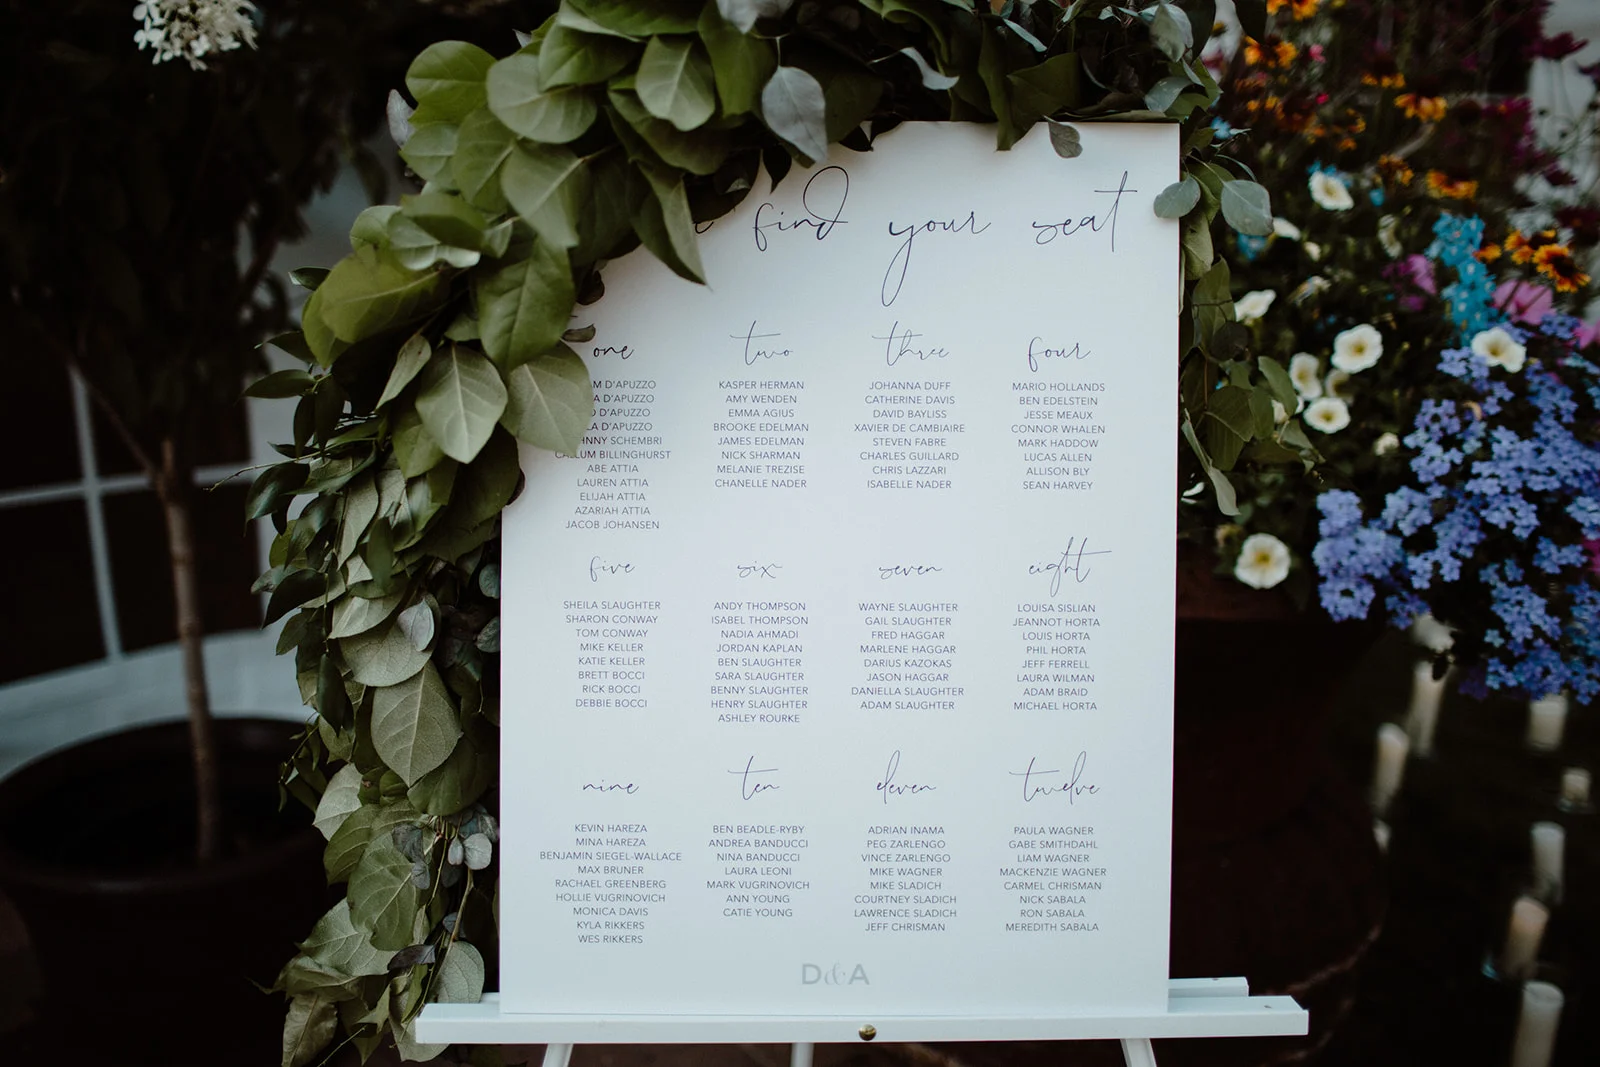 find your seat
one
D'APUZZO
D'APUZZO
D'APUZZO
D'APUZZO
SCHEMBRI
CALLUM BILLINGHURST
ABE ATTIA
LAUREN ATTIA
ELIJAH ATTIA
AZARIAH ATTIA
JACOB JOHANSEN
two
KASPER HERMAN
AMY WENDEN
EMMA AGIUS
BROOKE EDELMAN
JAMES EDELMAN
NICK SHARMAN
MELANIE TREZISE
CHANELLE NADER
three
JOHANNA DUFF
CATHERINE DAVIS
DAVID BAYLISS
XAVIER DE CAMBIAIRE
STEVEN FABRE
CHARLES GUILLARD
CHRIS LAZZARI
ISABELLE NADER
four
MARIO HOLLANDS
BEN EDELSTEIN
JESSE MEAUX
CONNOR WHALEN
MARK HADDOW
LUCAS ALLEN
ALLISON BLY
SEAN HARVEY
five
SHEILA SLAUGHTER
SHARON CONWAY
TOM CONWAY
MIKE KELLER
KATIE KELLER
BRETT BOCCI
RICK BOCCI
DEBBIE BOCCI
six
ANDY THOMPSON
ISABEL THOMPSON
NADIA AHMADI
JORDAN KAPLAN
BEN SLAUGHTER
SARA SLAUGHTER
BENNY SLAUGHTER
HENRY SLAUGHTER
ASHLEY ROURKE
seven
WAYNE SLAUGHTER
GAIL SLAUGHTER
FRED HAGGAR
MARLENE HAGGAR
DARIUS KAZOKAS
JASON HAGGAR
DANIELLA SLAUGHTER
ADAM SLAUGHTER
eight
LOUISA SISLIAN
JEANNOT HORTA
LOUIS HORTA
PHIL HORTA
JEFF FERRELL
LAURA WILMAN
ADAM BRAID
MICHAEL HORTA
nine
KEVIN HAREZA
MINA HAREZA
BENJAMIN SIEGEL-WALLACE
MAX BRUNER
RACHAEL GREENBERG
HOLLIE VUGRINOVICH
MONICA DAVIS
KYLA RIKKERS
WES RIKKERS
ten
BEN BEADLE-RYBY
ANDREA BANDUCCI
NINA BANDUCCI
LAURA LEONI
MARK VUGRINOVICH
ANN YOUNG
CATIE YOUNG
eleven
ADRIAN INAMA
PEG ZARLENGO
VINCE ZARLENGO
MIKE WAGNER
MIKE SLADICH
COURTNEY SLADICH
LAWRENCE SLADICH
JEFF CHRISMAN
twelve
PAULA WAGNER
GABE SMITHDAHL
LIAM WAGNER
MACKENZIE WAGNER
CARMEL CHRISMAN
NICK SABALA
RON SABALA
MEREDITH SABALA
D&A